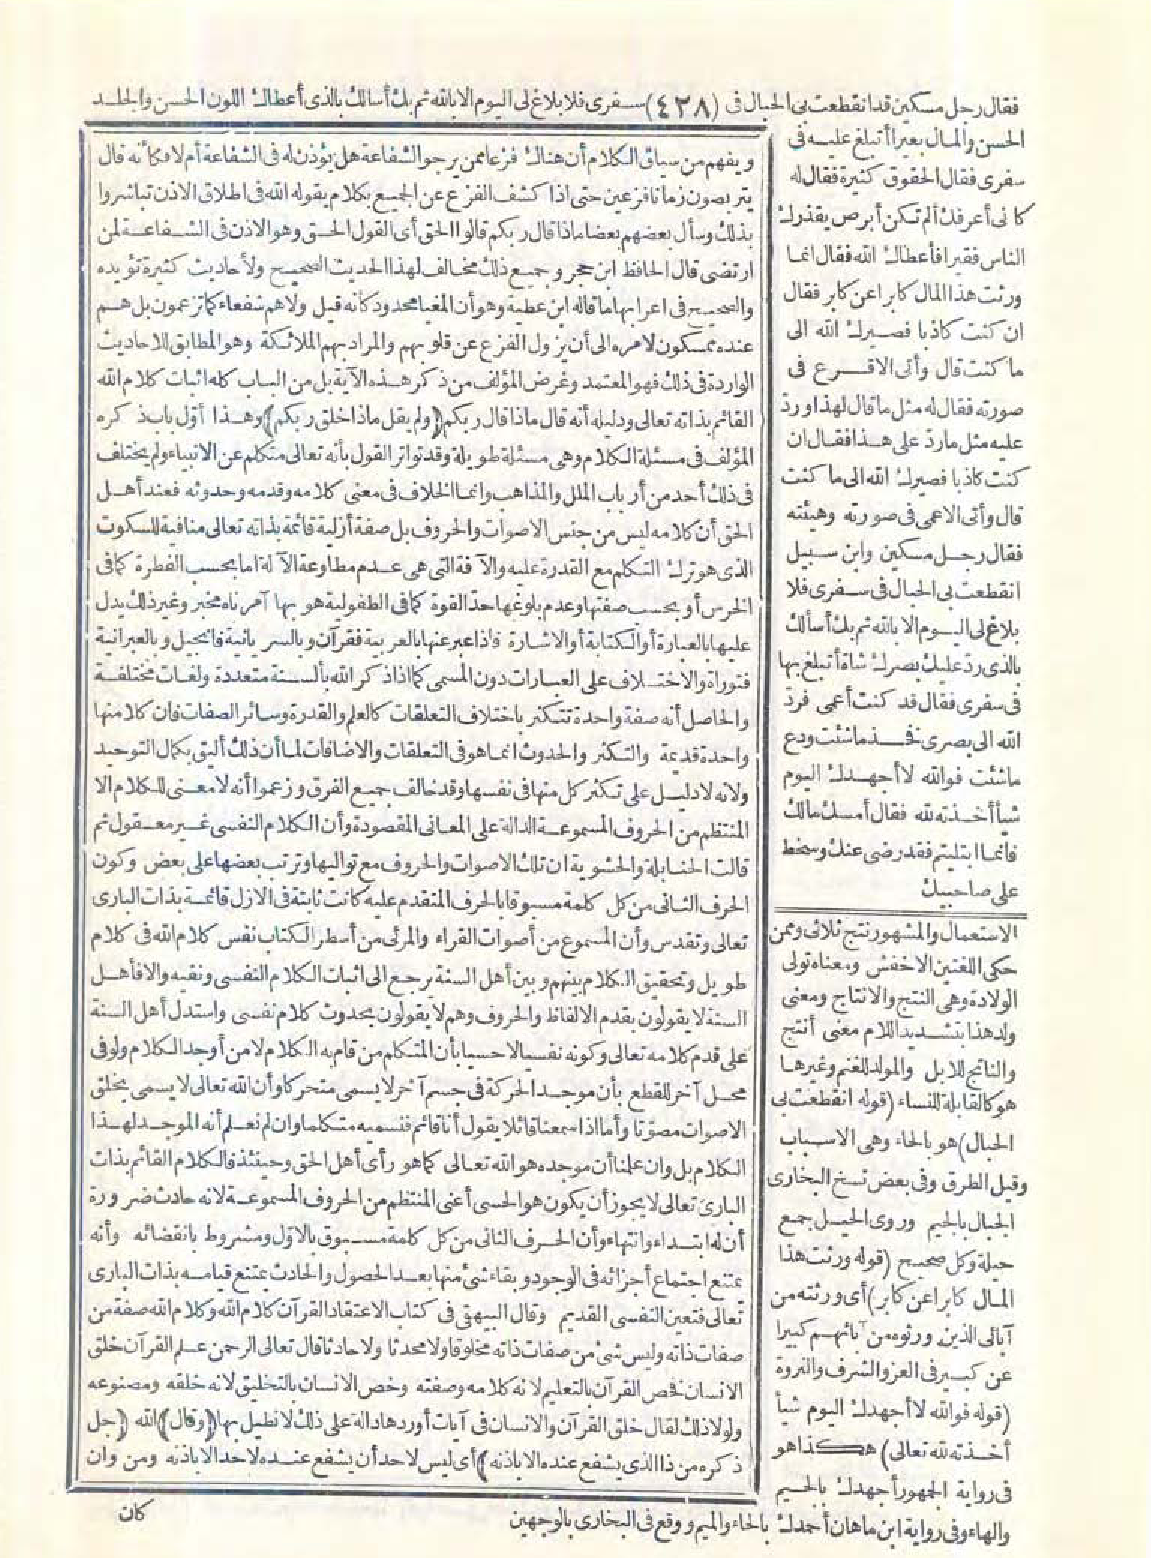 فقال رجل مسكين قد انقطعت بى الحبال فى (٤٢٨) سفرى فلا بلاغ لى اليوم الا بالله ثم بك أسألك بالذى أعطاك اللون الحسن والجلد
الحسن والمال بعيرا أتبلغ عليه فى
سفرى فقال الحقوق كثيرة فقال له
كانى أعرفك ألم تكن أبرص يقذرك
الناس فقيرا فأعطاك الله فقال انما
ورثت هذا المال كابرا عن كابر فقال
ان كنت كاذبا فصيرك الله الى
ما كنت قال وأتى الاقرع فى
صورته فقال له مثل ما قال لهذا ورد
عليه مثل ما رد على هذا فقال ان
كنت كاذبا فصيرك الله الى ما كنت
قال وأتى الاعمى فى صورته وهيئته
فقال رجل مسكين وابن سبيل
انقطعت بى الحبال فى سفرى فلا
بلاغ لى اليوم الا بالله ثم بك أسألك
بالذى رد عليك بصرك شاة أتبلغ بها
فى سفرى فقال قد كنت أعمى فرد
الله الى بصرى فخذ ما شئت ودع
ما شئت فوالله لا أجهدك اليوم
شيأ أخذته لله فقال أمسك مالك
فانما ابتليتم فقد رضى عنك وسخط
على صاحبيك
الاستعمال والمشهور نتج ثلاثى وممن
حكى اللغتين الاخفش ومعناه تولى
الولادة وهى النتج والانتاج ومعنى
ولد هذا بتشديد اللام معنى أنتج
والناتج للابل والمولد للغنم وغيرها
هو كالقابلة للنساء (قوله انقطعت بى
الحبال) هو بالحاء وهى الاسباب
وقيل الطرق وفى بعض نسخ البخارى
الجبال بالجيم وروى الحيل جمع
حيلة وكل صحيح (قوله ورثت هذا
المال كابرا عن كابر) أى ورثته من
آبائى الذين ورثوه من آبائهم كبيرا
عن كبير فى العز والشرف والثروة
(قوله فوالله لا أجهدك اليوم شيأ
أخذته لله تعالى) هكذا هو
فى رواية الجمهور أجهدك بالجيم
والهاء وفى رواية ابن ماهان أحمدك بالحاء والميم ووقع فى البخارى بالوجهين
ويفهم من سياق الكلام أن هناك فزعا ممن يرجو الشفاعة هل يؤذن له فى الشفاعة أم لا فكأنه قال
يتربصون زمانا فزعين حتى اذا كشف الفزع عن الجميع بكلام يقوله الله فى اطلاق الاذن تباشروا
بذلك وسأل بعضهم بعضا ماذا قال ربكم قالوا الحق أى القول الحق وهو الاذن فى الشفاعة لمن
ارتضى قال الحافظ ابن حجر وجميع ذلك مخالف لهذا الحديث الصحيح ولأحاديث كثيرة تؤيده
والصحيح فى اعرابها ما قاله ابن عطية وهو أن المغيا محذوف كأنه قيل ولا هم شفعاء كما تزعمون بل هم
عنده ممسكون لامره الى أن يزول الفزع عن قلوبهم والمراد بهم الملائكة وهو المطابق للاحاديث
الواردة فى ذلك فهو المعتمد وغرض المؤلف من ذكر هذه الآية بل من الباب كله اثبات كلام الله
القائم بذاته تعالى ودليله أنه قال ماذا قال ربكم (ولم يقل ماذا خلق ربكم) وهذا أول باب ذكره
المؤلف فى مسئلة الكلام وهى مسئلة طويلة وقد تواتر القول بأنه تعالى متكلم عن الانبياء ولم يختلف
فى ذلك أحد من أرباب الملل والمذاهب وانما الخلاف فى معنى كلامه وقدمه وحدوثه فعند أهل
الحق أن كلامه ليس من جنس الاصوات والحروف بل صفة أزلية قائمة بذاته تعالى منافية للسكوت
الذى هو ترك التكلم مع القدرة عليه والآفة التى هى عدم مطاوعة الآلة اما بحسب الفطرة كما فى
الخرس أو بحسب ضعفها وعدم بلوغها حد القوة كما فى الطفولية هو بها آمر ناه مخبر وغير ذلك يدل
عليها بالعبارة أو الكتابة أو الاشارة فاذا عبر عنها بالعربية فقرآن وبالسريانية فانجيل وبالعبرانية
فتوراة والاختلاف على العبارات دون المسمى كما اذا ذكر الله بألسنة متعددة ولغات مختلفة
والحاصل أنه صفة واحدة تتكثر باختلاف التعلقات كالعلم والقدرة وسائر الصفات فان كلا منها
واحدة قديمة والتكثر والحدوث انما هو فى التعلقات والاضافات لما أن ذلك أليق بكمال التوحيد
ولانه لا دليل على تكثر كل منها فى نفسها وقد خالف جميع الفرق وزعموا أنه لا معنى للكلام الا
المنتظم من الحروف المسموعة الدالة على المعانى المقصودة وأن الكلام النفسى غير معقول ثم
قالت الحنابلة والحشوية ان تلك الاصوات والحروف مع تواليها وترتب بعضها على بعض وكون
الحرف الثانى من كل كلمة مسبوقا بالحرف المتقدم عليه كانت ثابتة فى الازل قائمة بذات البارى
تعالى وتقدس وأن المسموع من أصوات القراء والمرئى من أسطر الكتاب نفس كلام الله فى كلام
طويل وتحقيق الكلام بينهم وبين أهل السنة يرجع الى اثبات الكلام النفسى ونفيه والا فأهل
السنة لا يقولون بقدم الالفاظ والحروف وهم لا يقولون بحدوث كلام نفسى واستدل أهل السنة
على قدم كلامه تعالى وكونه نفسيا لا حسيا بأن المتكلم من قام به الكلام لا من أوجد الكلام ولو فى
محل آخر للقطع بأن موجد الحركة فى جسم آخر لا يسمى متحركا وأن الله تعالى لا يسمى بخلق
الاصوات مصوتا وأما اذا سمعنا قائلا يقول أنا قائم فنسميه متكلما وان لم نعلم أنه الموجد لهذا
الكلام بل وان علمنا أن موجده هو الله تعالى كما هو رأى أهل الحق وحينئذ فالكلام القائم بذات
البارئ تعالى لا يجوز أن يكون هو الحسى أعنى المنتظم من الحروف المسموعة لانه حادث ضرورة
أن له ابتداء وانتهاء وأن الحرف الثانى من كل كلمة مسبوق بالاول ومشروط بانقضائه وأنه
يمتنع اجتماع أجزائه فى الوجود وبقاء شئ منها بعد الحصول والحادث يمتنع قيامه بذات البارى
تعالى فتعين النفسى القديم وقال البيهقى فى كتاب الاعتقاد القرآن كلام الله وكلام الله صفة من
صفات ذاته وليس شئ من صفات ذاته مخلوقا ولا محدثا ولا حادثا قال تعالى الرحمن علم القرآن خلق
الانسان فخص القرآن بالتعليم لانه كلامه وصفته وخص الانسان بالتخليق لانه خلقه ومصنوعه
ولولا ذلك لقال خلق القرآن والانسان فى آيات أوردها دالة على ذلك لا نطيل بها (وقال) الله (جل
ذكره من ذا الذى يشفع عنده الا باذنه) أى ليس لاحد أن يشفع عنده لاحد الا باذنه ومن وان
كان